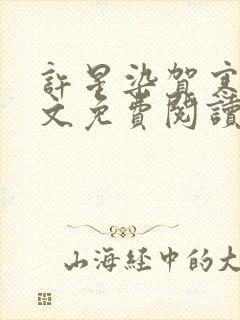 許星染賀寒
文免費閱讀
山海經中的大